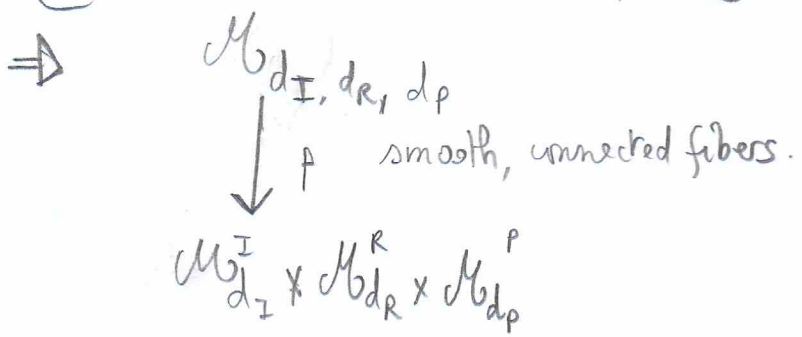 ⇒ ℳ_{d_I, d_R, d_P}
↓ p smooth, connected fibers.
ℳ^I_{d_I} × ℳ^R_{d_R} × ℳ^P_{d_P}